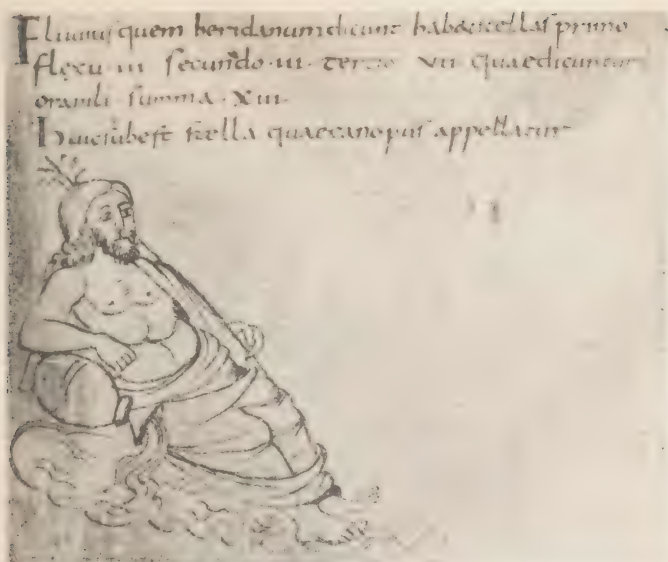 Fluuius quem heridanum dicunt habet stellas primo
flexu · iii · secundo · iii · tertio vii quae dicuntur
oramili · summa · Xiii ·
Huic subest stella quae canopus appellatur